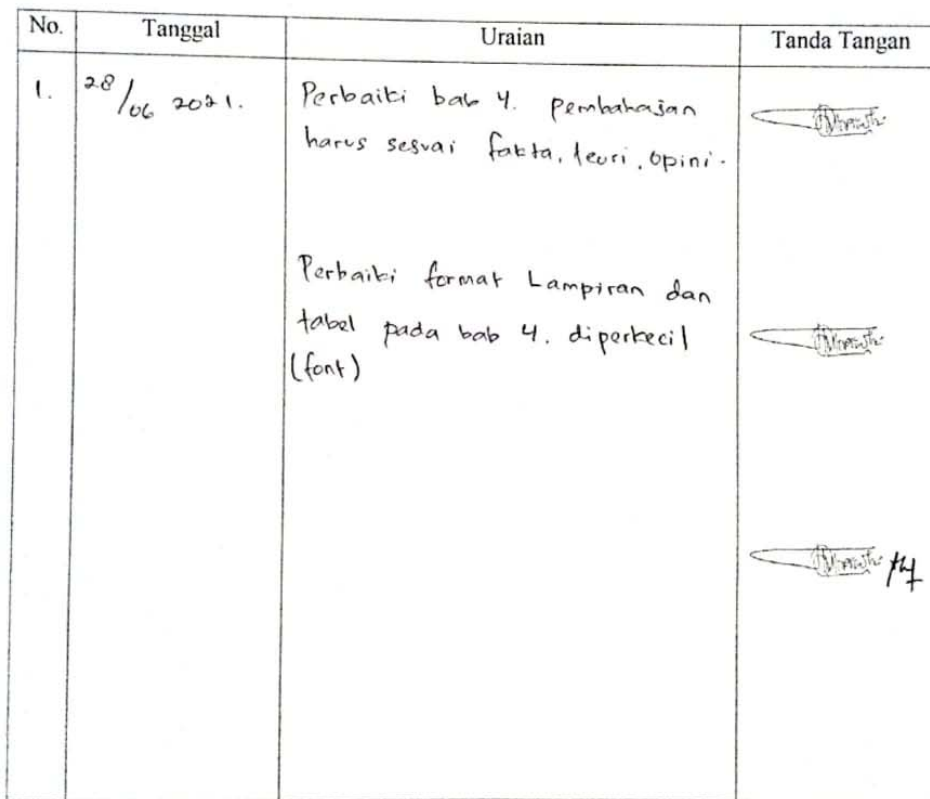 No. Tanggal Uraian Tanda Tangan
1. 28/06 2021. Perbaiki bab 4. pembahasan
harus sesuai fakta, teori, opini.
Perbaiki format Lampiran dan
tabel pada bab 4. diperkecil
(font)